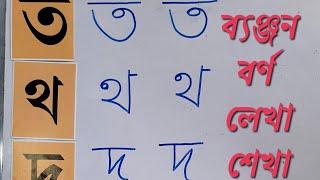 ত ত ত
থ থ থ
দ দ দ
ব্যঞ্জন
বর্ণ
লেখা
শেখা